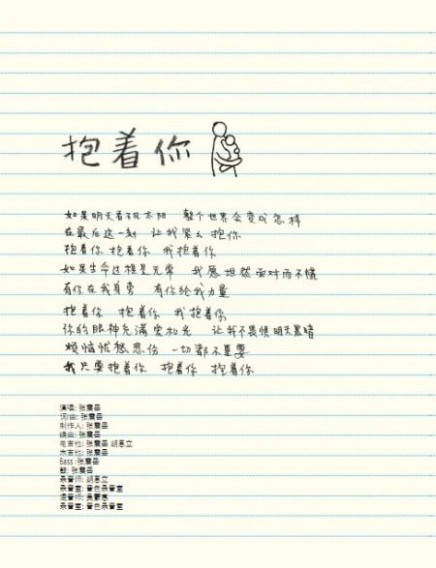 抱着你
如果明天看不见太阳 整个世界会变成怎样
在最后这一刻 让我紧紧抱你
抱着你 抱着你 我抱着你
如果生命过程是无常 我愿坦然面对而不慌
有你在我身旁 有你给我力量
抱着你 抱着你 我抱着你
你的眼神充满爱和光 让我不畏惧明天黑暗
烦恼忧愁悲伤 一切都不重要
我只要抱着你 抱着你 抱着你
演唱: 张震岳
词/曲: 张震岳
制作人: 张震岳
编曲: 张震岳
电吉他: 张震岳 胡恩立
木吉他: 张震岳
Bass: 张震岳
鼓: 张震岳
录音师: 胡恩立
录音室: 音色录音室
混音师: 黄
录音室: 音色录音室